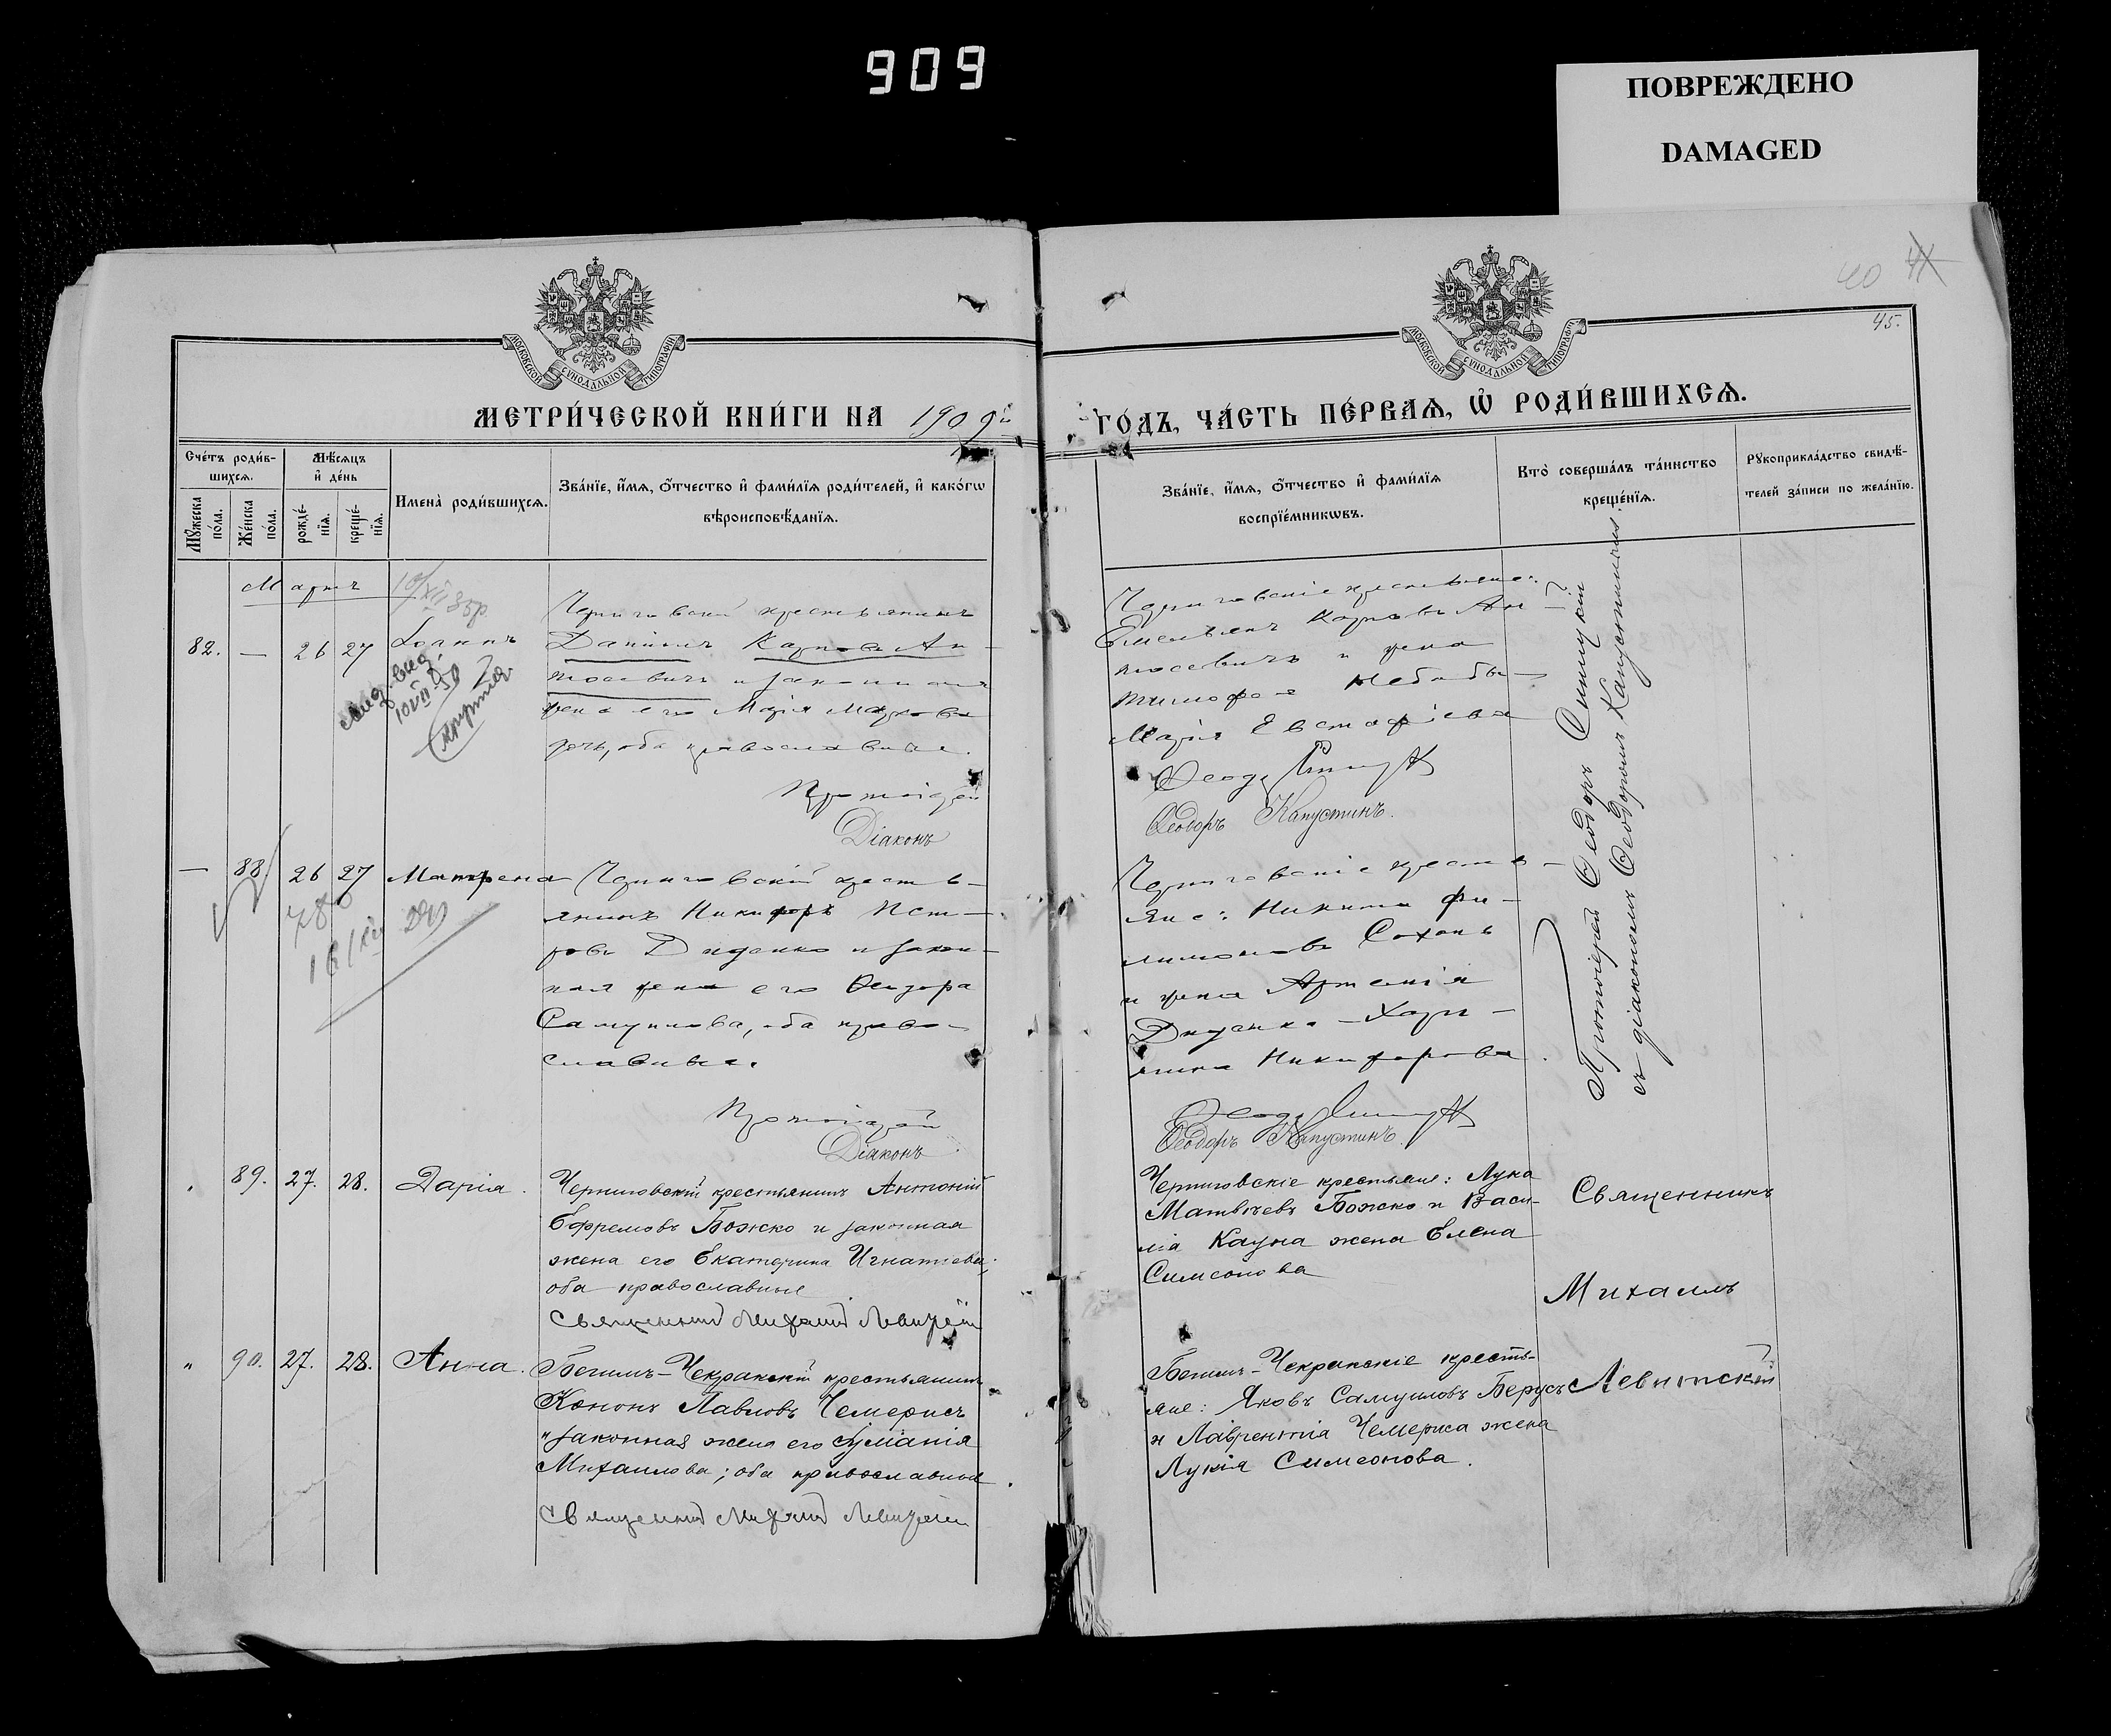 909
ПОВРЕЖДЕНО
DAMAGED
40
45.
МОСКОВСКОЙ СѴНОДАЛЬНОЙ ТИПОГРАФІИ
МОСКОВСКОЙ СѴНОДАЛЬНОЙ ТИПОГРАФІИ
МЕТРИ́ЧЕСКОЙ КНИ́ГИ НА 1909й
ГО́ДЪ, ЧА́СТЬ ПЕ́РВАѦ, Ѡ҆ РОДИ́ВШИХСѦ.
Сче́тъ роди́в-
шихсѧ.
Мꙋ́жеска по́ла.
Же́нска по́ла.
Мѣ́сѧцъ
и҆ де́нь
рожде́-
нїѧ.
креще́-
нїѧ.
Имена̀ роди́вшихсѧ.
Зва́нїе, и҆́мѧ, ѻ҆́тчество и҆ фами́лїѧ роди́телей, и҆ како́гѡ
вѣроисповѣ́данїѧ.
Зва́нїе, и҆́мѧ, ѻ҆́тчество и҆ фами́лїѧ
воспрїе́мникѡвъ.
Кто̀ соверша́лъ та́инство
креще́нїѧ.
Рꙋкоприкла́дство свидѣ́-
телей за́писи по жела́нїю.
Мартъ
82. — 26 27 Іоаннъ
Черниговскій крестьянинъ
Даніилъ Карповъ Ан-
тосевичъ и законная
жена его Марія Маркова
оба православные.
Протоіерей
Діаконъ
Черниговскіе крестьяне:
Емельянъ Карповъ Ан-
тосевичъ и жена
Тимофея
Марія Евстафіева
Ѳеодоръ Капустинъ.
— 88 26 27 Матрена
Черниговскій кресть-
янинъ Никифоръ Пет-
ровъ Диденко и закон-
ная жена его Ѳеодора
Самуилова, оба право-
славные.
Протоіерей
Діаконъ
Черниговскіе кресть-
яне: Никита Фи-
лимоновъ Сохань
и жена Артемія
Диденко - Хари-
тина Никифорова.
Ѳеодоръ Капустинъ.
Протоіерей Ѳеодоръ
съ діакономъ Ѳеодоромъ Капустинымъ.
89. 27. 28. Дарія.
Черниговскій крестьянинъ Антоній
Ефремовъ Божко и законная
жена его Екатерина Игнатіева;
оба православные
Священникъ Михаилъ Левитскій
Черниговскіе крестьяне: Лука
Матвѣевъ Божко и Васи-
лія Кауна жена Елена
Симеонова
Священникъ
Михаилъ
Левитскій
„ 90. 27. 28. Анна.
Бегимъ-Чекракскій крестьянинъ
Кононъ Павловъ Чемерисъ
и законная жена его
Михаилова; оба православные.
Священникъ Михаилъ Левитскій
Бегимъ-Чекракскіе кресть-
яне: Яковъ Самуиловъ Берусъ
и Лаврентія Чемериса жена
Лукія Симеонова.